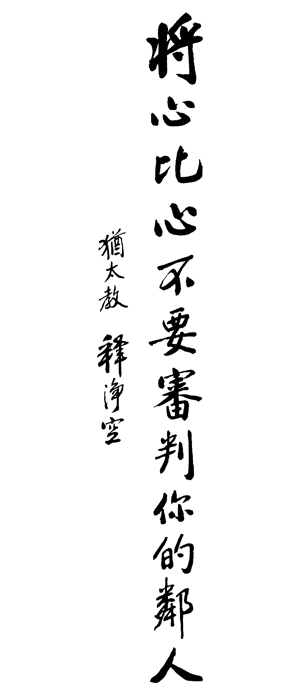 将心比心不要審判你的鄰人
猶太教 释淨空